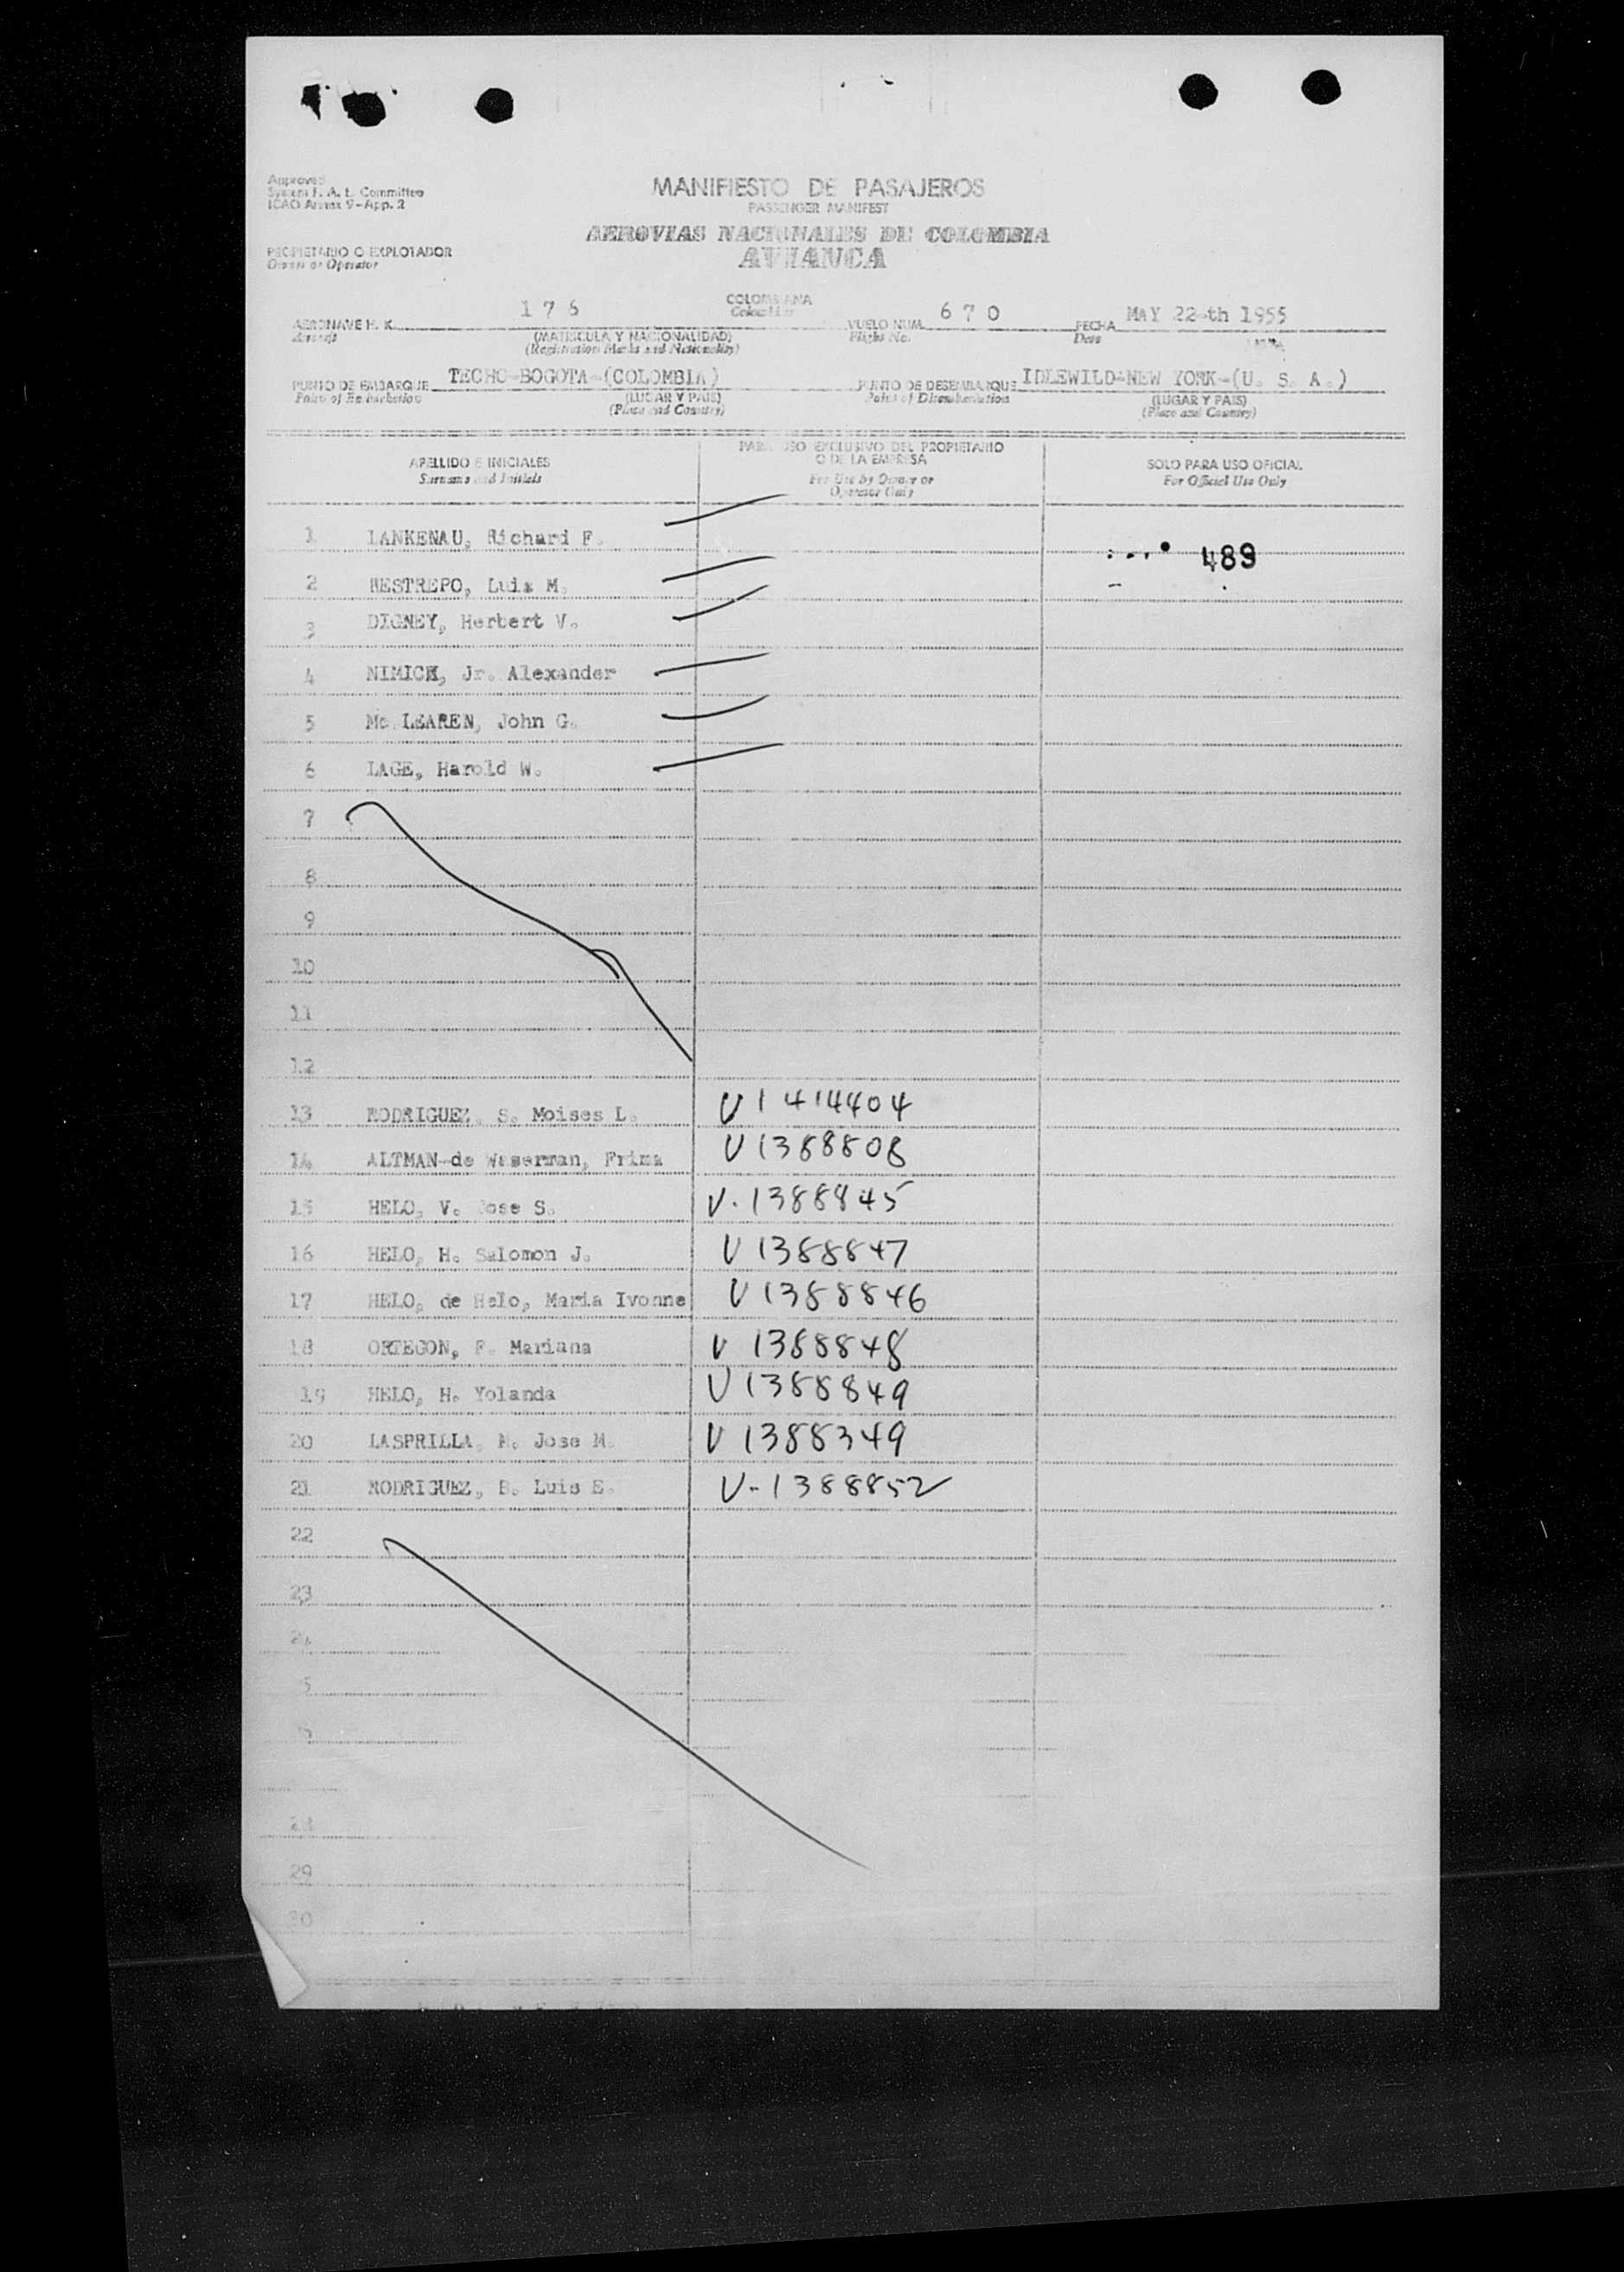 Approved
System F. A. L. Committee
ICAO Annex 9-App. 2
MANIFIESTO DE PASAJEROS
PASSENGER MANIFEST
AEROVIAS NACIONALES DE COLOMBIA
AVIANCA
PROPIETARIO O EXPLOTADOR
Owner or Operator
AERONAVE H. K. 176 COLOMBIANA VUELO NUM. 670 FECHA MAY 22-th 1955
Aircraft (MATRICULA Y NACIONALIDAD) Colombian Flight No. Date
(Registration Marks and Nationality)
PUNTO DE EMBARQUE TECHO-BOGOTA-(COLOMBIA) PUNTO DE DESEMBARQUE IDLEWILD-NEW YORK-(U. S. A.)
Point of Embarkation (LUGAR Y PAIS) Point of Disembarkation (LUGAR Y PAIS)
(Place and Country) (Place and Country)
APELLIDO E INICIALES PARA USO EXCLUSIVO DEL PROPIETARIO O DE LA EMPRESA SOLO PARA USO OFICIAL
Surname and Initials For Use by Owner or Operator Only For Official Use Only
1 LANKENAU, Richard F.
489
2 RESTREPO, Luis M.
3 DIGNEY, Herbert V.
4 NIMICK, Jr. Alexander
5 Mc LEAREN, John G.
6 LAGE, Harold W.
7
8
9
10
11
12
13 RODRIGUEZ, S. Moises L. V 1414404
14 ALTMAN-de Waserman, Frima V 1388808
15 HELO, V. Jose S. V-1388845
16 HELO, H. Salomon J. V 1388847
17 HELO, de Helo, Maria Ivonne V 1388846
18 ORTEGON, F. Mariana V 1388848
19 HELO, H. Yolanda V 1388849
20 LASPRILLA, M. Jose M. V 1388349
21 RODRIGUEZ, B. Luis E. V-1388852
22
23
24
5
28
29
30